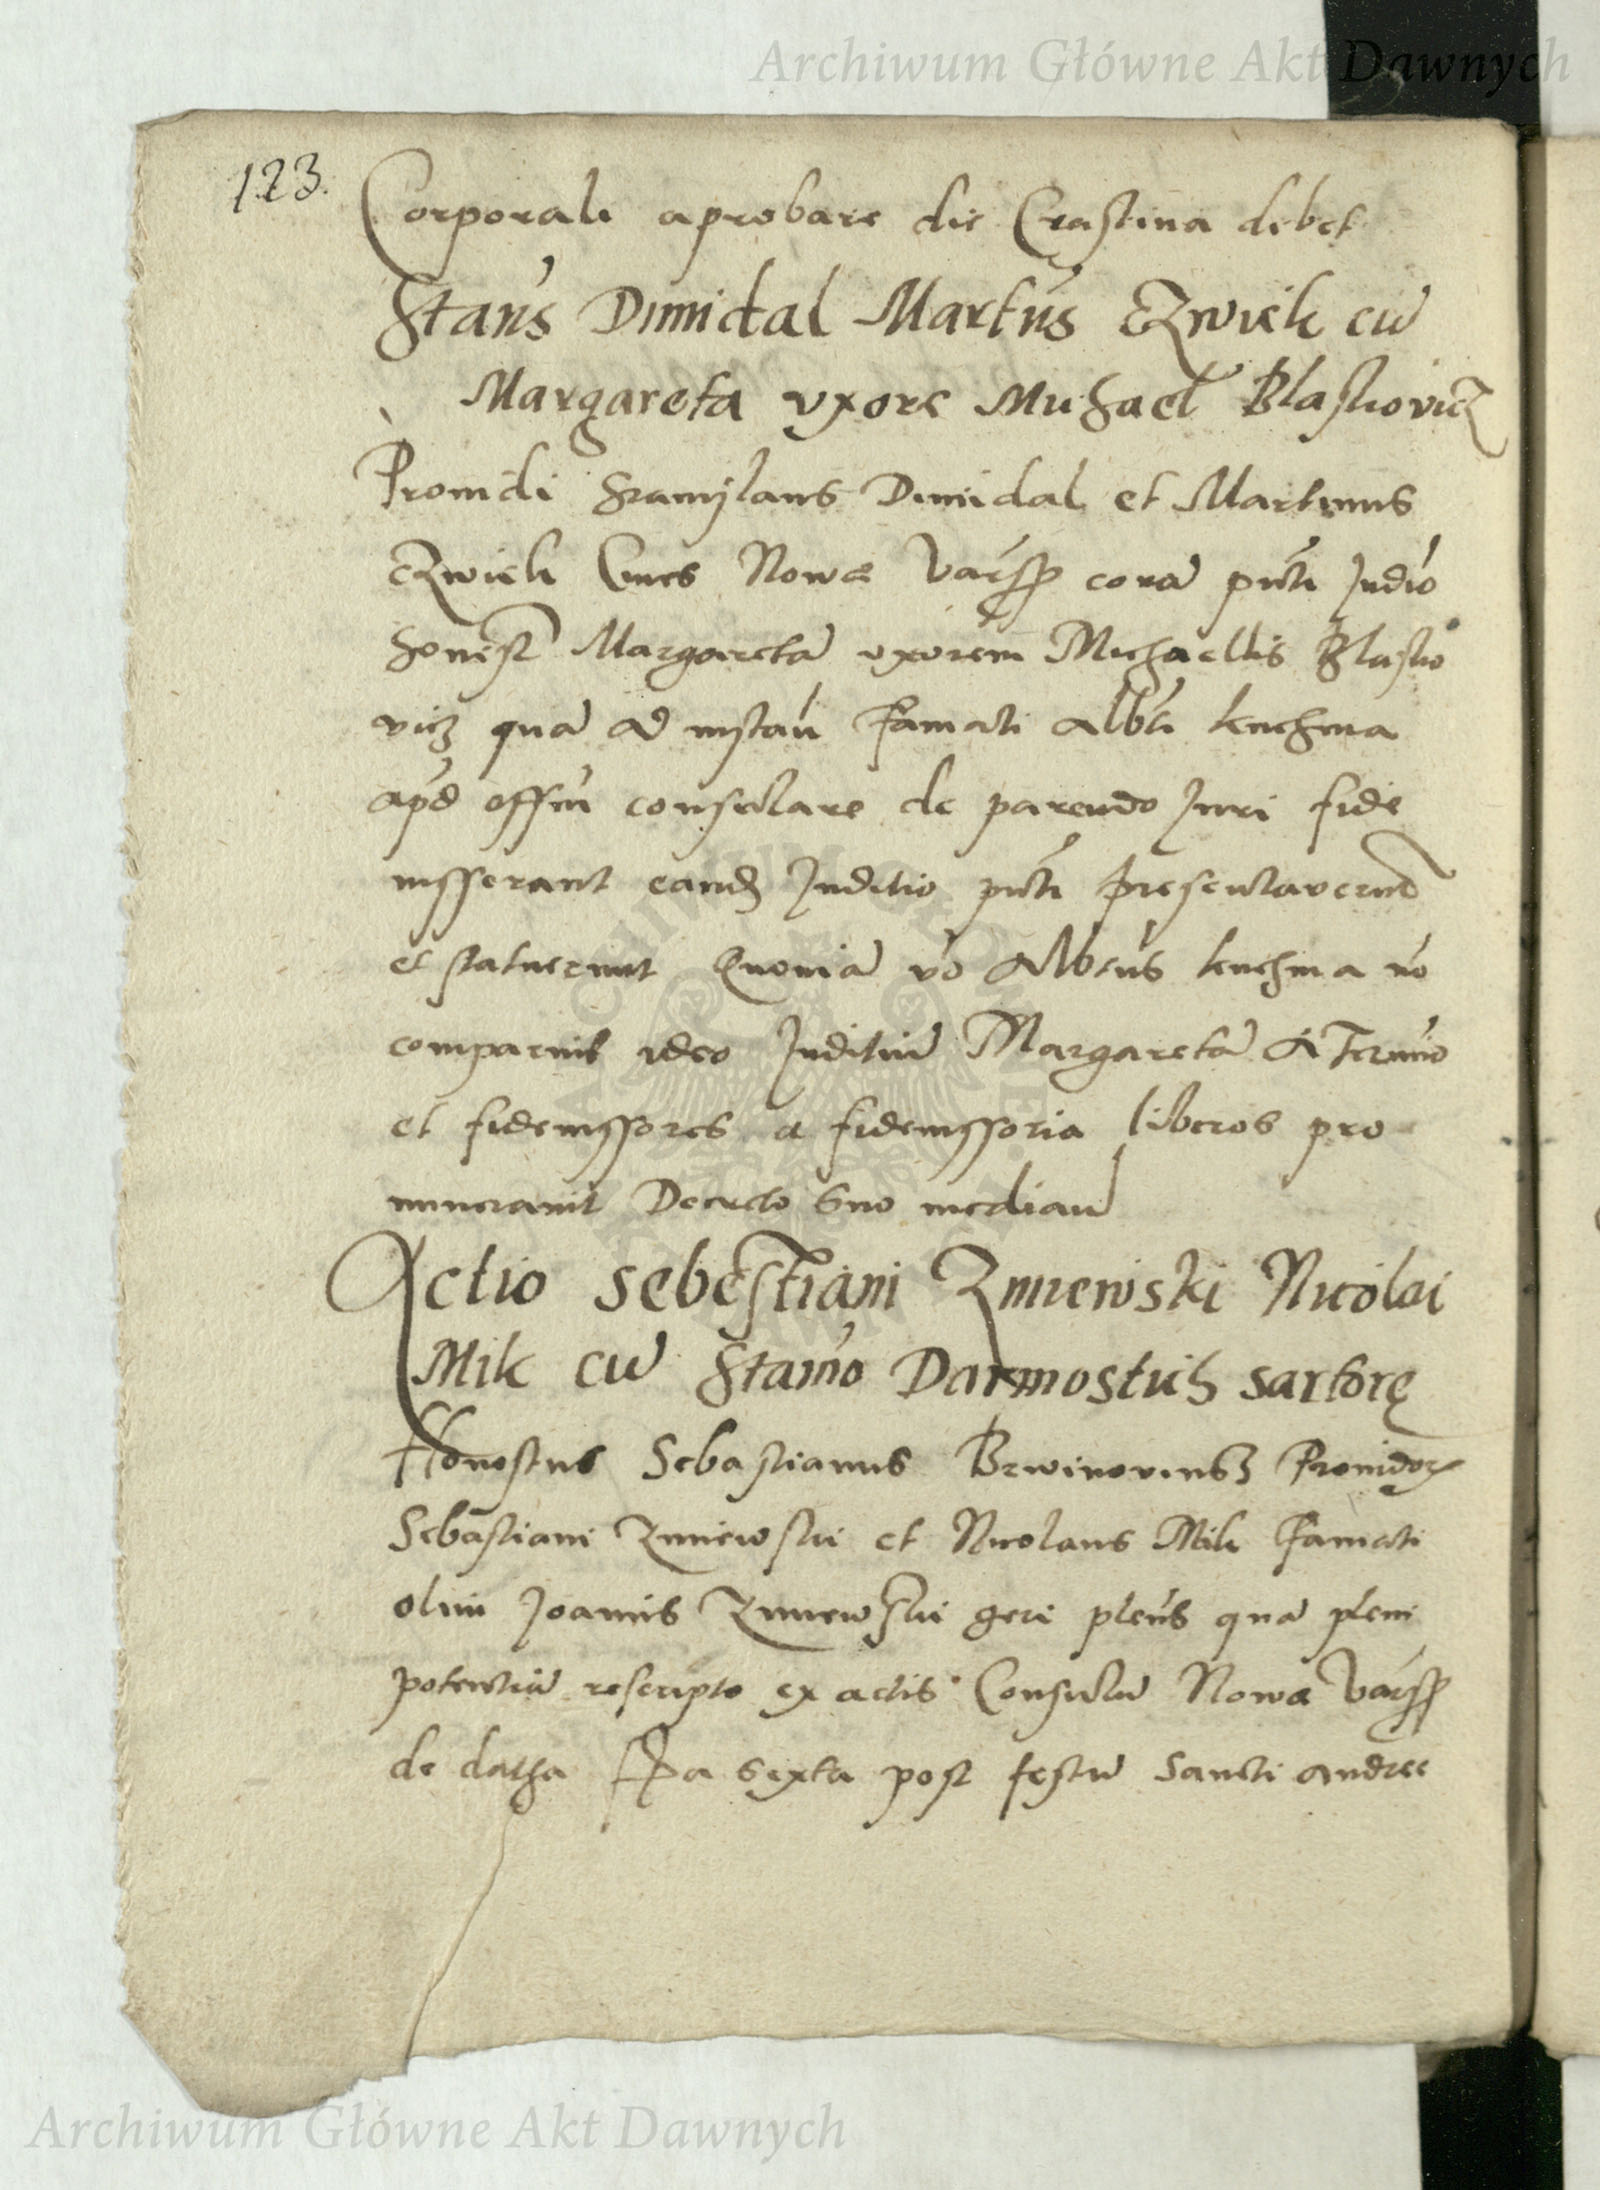 Archiwum Główne Akt Dawnych
123.
Corporali aprobare die Crastina debet
Stan's Dimidal Martin's Czwiek cu
Margareta uxore Michael Blaskovicz
Providi Stanislaus Dimidal et Martinus
Czwiek Cives Nowæ Vars cora pnti Judio
honest Margareta uxorem Michaellis Blasko
vicz qua ad instan Famati Albti
apd offiu consulare de parendo Juri fide
iusserant eand Juditio pnti presentaverut
et statuerunt Quonia vo Albtus no
comparuit ideo Juditiu Margareta a Termino
et fideiussores a fideiussoria liberos pro
nunctiavit Decreto suo median
Actio Sebestiani Zmiewski Nicolai
Mik cu Stanio Darmostuch sartore
Honestus Sebastianus Providor
Sebastiani Zmiewski et Nicolaus Mik Famati
olim Joannis Zmiewski geri plenus qua pleni
potentiu rescripto ex actis Consulu Nowæ Vars
de datha fa sexta post festu Sancti Andree
Archiwum Główne Akt Dawnych